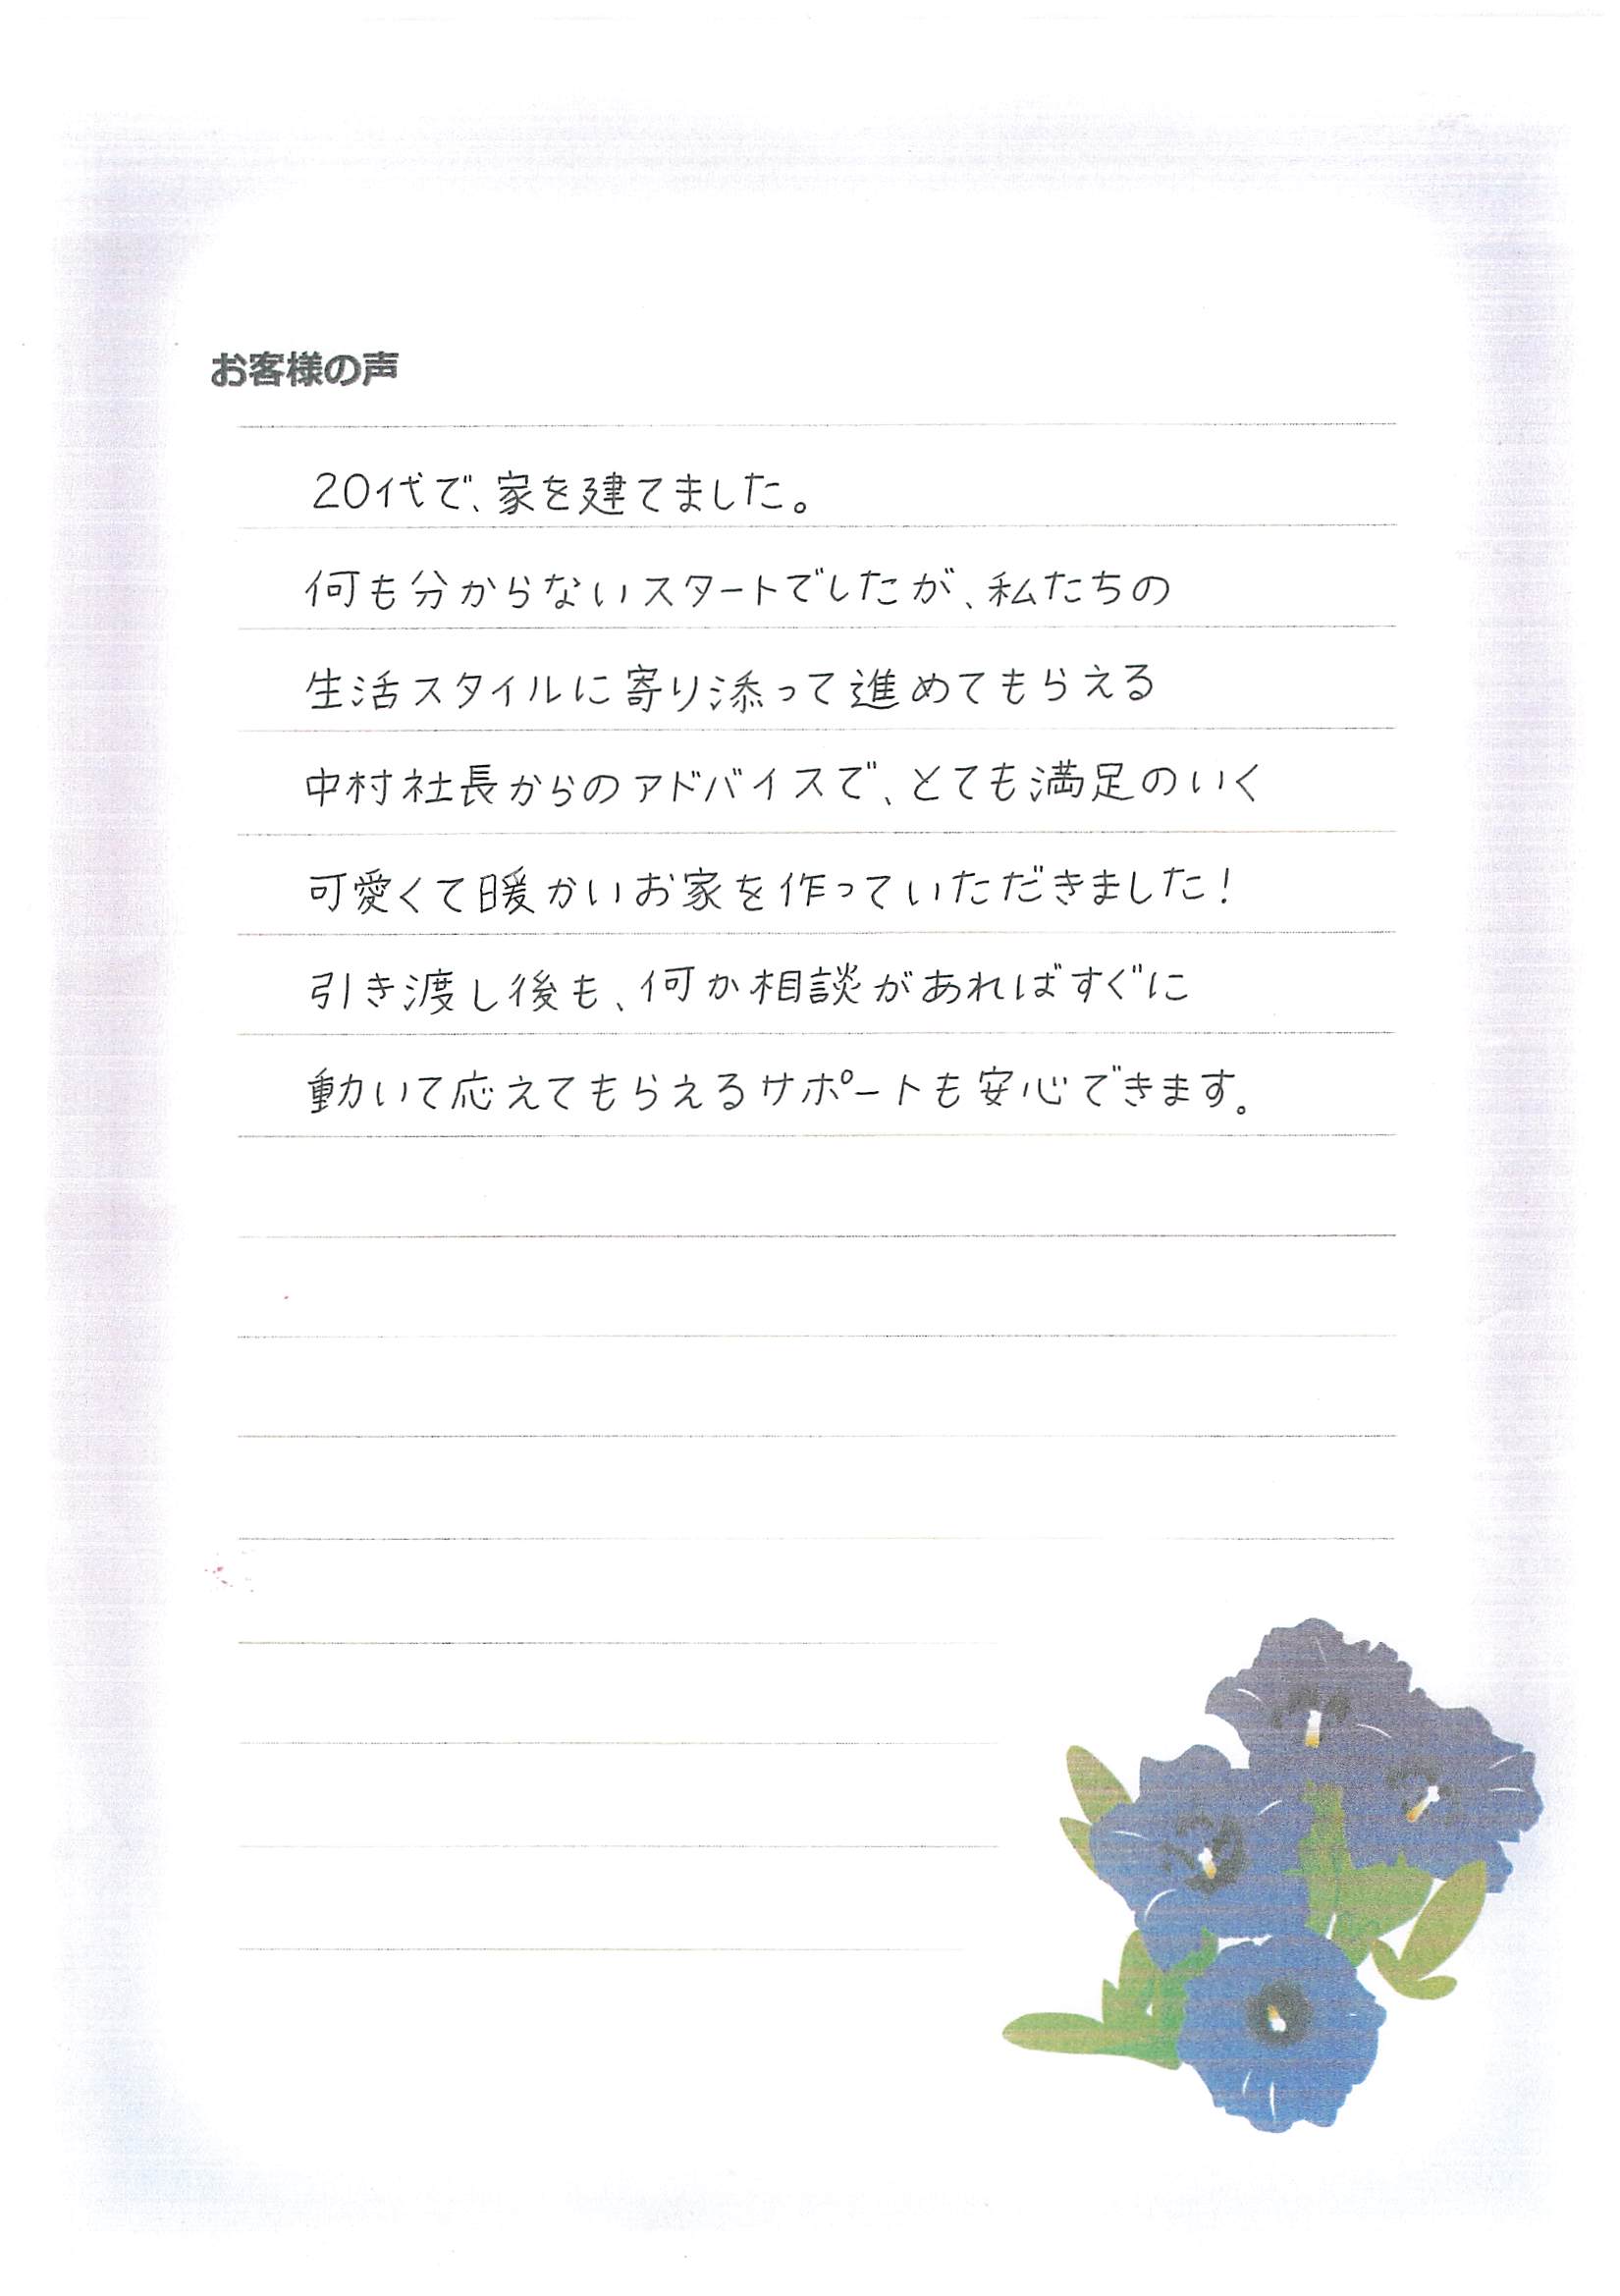 お客様の声
20代で、家を建てました。
何も分からないスタートでしたが、私たちの
生活スタイルに寄り添って進めてもらえる
中村社長からのアドバイスで、とても満足のいく
可愛くて暖かいお家を作っていただきました！
引き渡し後も、何か相談があればすぐに
動いて応えてもらえるサポートも安心できます。